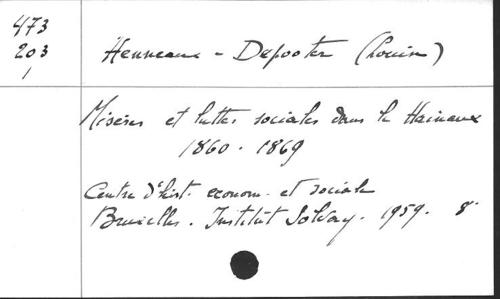 473
203
1
Henneaux - Depooter (Louise)
Misères et luttes sociales dans le Hainaux
1860 - 1869
Centre d'hist. econom. et sociale
Bruxelles. Institut Solvay. 1959. 8°